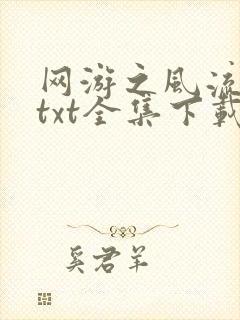 网游之风流
txt全集下载
奚君羊